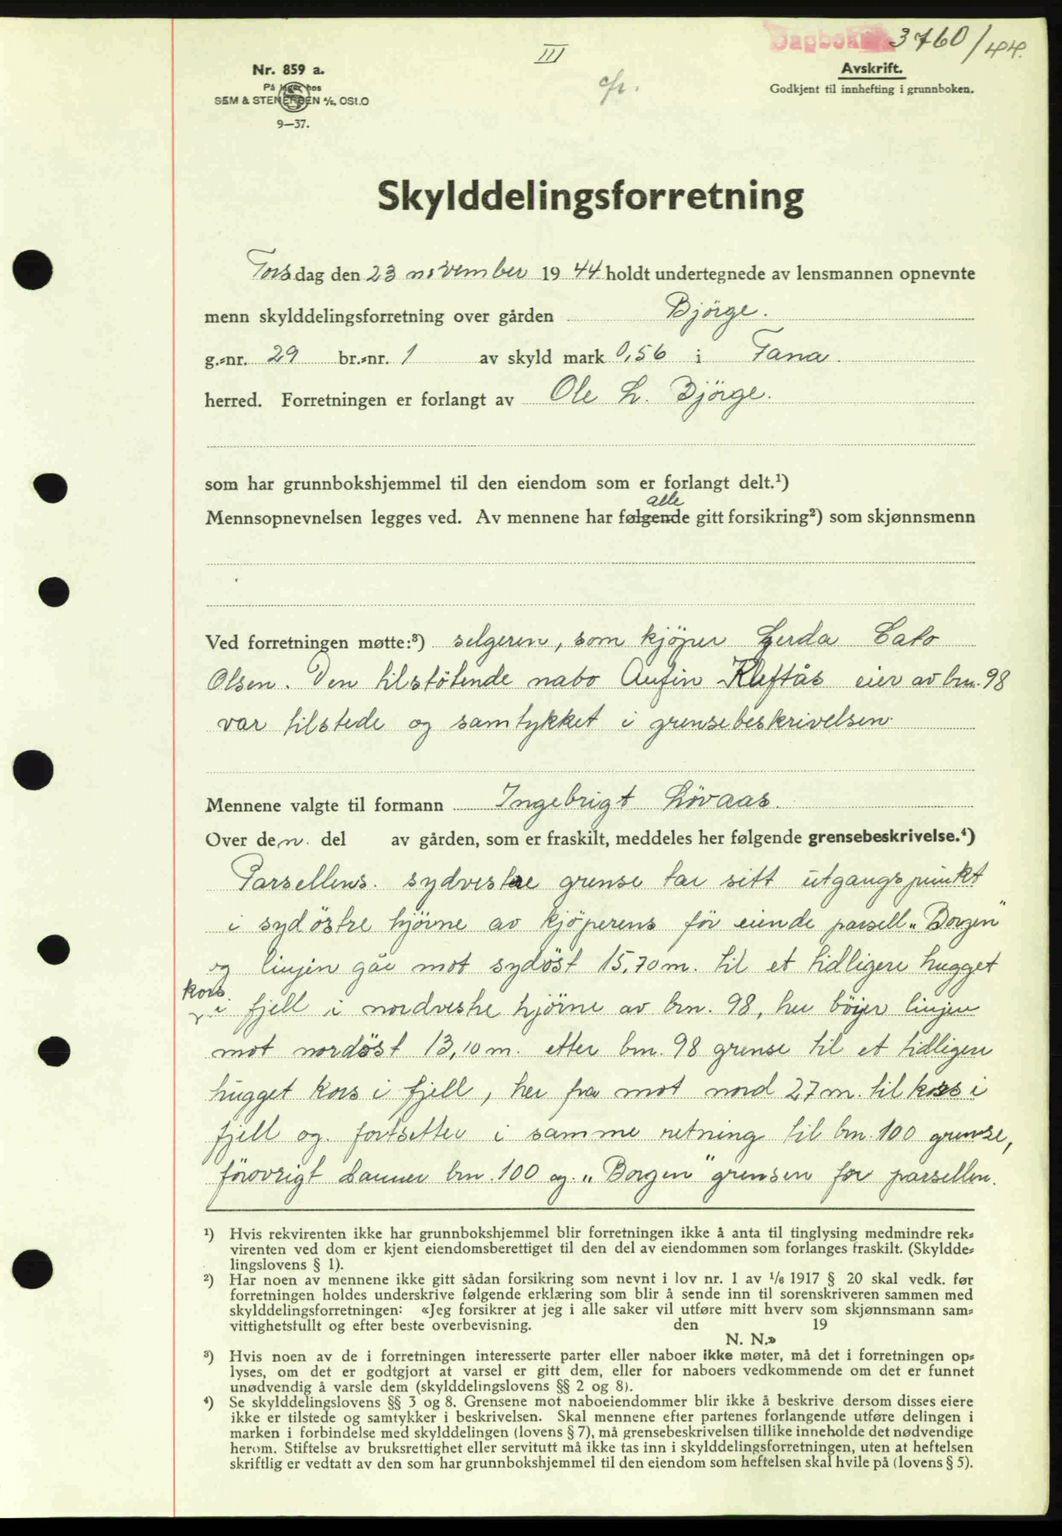 Dagbok 3760/44.
III
Nr. 859 a.
På lager hos
SEM & STENERSEN A/S, OSLO
9—37.
Avskrift.
Godkjent til innhefting i grunnboken.
Skylddelingsforretning
Torsdag den 23 november 1944 holdt undertegnede av lensmannen opnevnte
menn skylddelingsforretning over gården Bjørge.
g.-nr. 29 br.-nr. 1 av skyld mark 0,56 i Fana.
herred. Forretningen er forlangt av Ole L. Bjørge.
som har grunnbokshjemmel til den eiendom som er forlangt delt.¹)
alle
Mennsopnevnelsen legges ved. Av mennene har følgende gitt forsikring²) som skjønnsmenn
Ved forretningen møtte:³) selgeren, som kjöper Gerda Cato
Olsen. Den tilstötende nabo Anfin Kleftås eier av brn. 98
var tilstede og samtykket i grensebeskrivelsen.
Mennene valgte til formann Ingebrigt Lövaas.
Over den. del av gården, som er fraskilt, meddeles her følgende grensebeskrivelse.⁴)
Parsellens. sydvestre grense tar sitt utgangspunkt
i sydöstre hjörne av kjöperens för eiende parsell „Borgen"
og linjen går mot sydöst 15,70 m. til et tidligere hugget
kors
i fjell i nordvestre hjörne av brn. 98, her böier linjen
mot nordöst 13,10 m. etter brn. 98 grense til et tidligere
hugget kors i fjell, her fra mot nord 27 m. til kors i
fjell og. fortsetter i samme retning til brn. 100 grense,
forövrigt danner brn. 100 og. „Borgen" grensen for parsellen.
¹) Hvis rekvirenten ikke har grunnbokshjemmel blir forretningen ikke å anta til tinglysing medmindre rek-
virenten ved dom er kjent eiendomsberettiget til den del av eiendommen som forlanges fraskilt. (Skyldde-
lingslovens § 1).
²) Har noen av mennene ikke gitt sådan forsikring som nevnt i lov nr. 1 av 1/6 1917 § 20 skal vedk. før
forretningen holdes underskrive følgende erklæring som blir å sende inn til sorenskriveren sammen med
skylddelingsforretningen: «Jeg forsikrer at jeg i alle saker vil utføre mitt hverv som skjønnsmann sam-
vittighetsfullt og efter beste overbevisning. den 19
N. N.»
³) Hvis noen av de i forretningen interesserte parter eller naboer ikke møter, må det i forretningen op-
lyses, om det er godtgjort at varsel er gitt dem, eller for naboers vedkommende om det er funnet
unødvendig å varsle dem (skylddelingslovens §§ 2 og 8).
⁴) Se skylddelingslovens §§ 3 og 8. Grensene mot naboeiendommer blir ikke å beskrive dersom disses eiere
ikke er tilstede og samtykker i beskrivelsen. Skal mennene efter partenes forlangende utføre delingen i
marken i forbindelse med skylddelingen (lovens § 7), må grensebeskrivelsen tillike inneholde det nødvendige
herom. Stiftelse av bruksrettighet eller servitutt må ikke tas inn i skylddelingsforretningen, uten at heftelsen
skriftlig er vedtatt av den som har grunnbokshjemmel til den eiendom som heftelsen skal hvile på (lovens § 5).